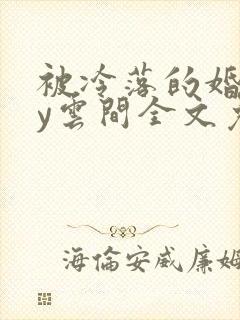 被冷落的婚
y雲間全文
海倫安威廉姆